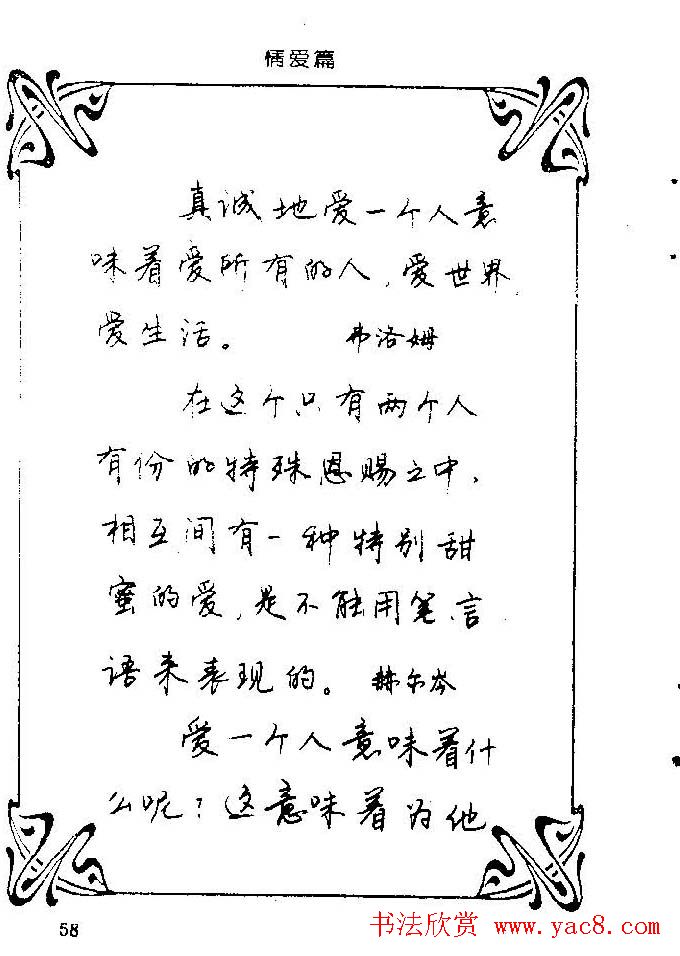 情爱篇
真诚地爱一个人意
味着爱所有的人，爱世界，
爱生活。 弗洛姆
在这个只有两个人
有份的特殊恩赐之中，
相互间有一种特别甜
蜜的爱，是不能用笔、言
语来表现的。 赫尔岑
爱一个人意味着什
么呢？这意味着为他
58
书法欣赏 www.yac8.com